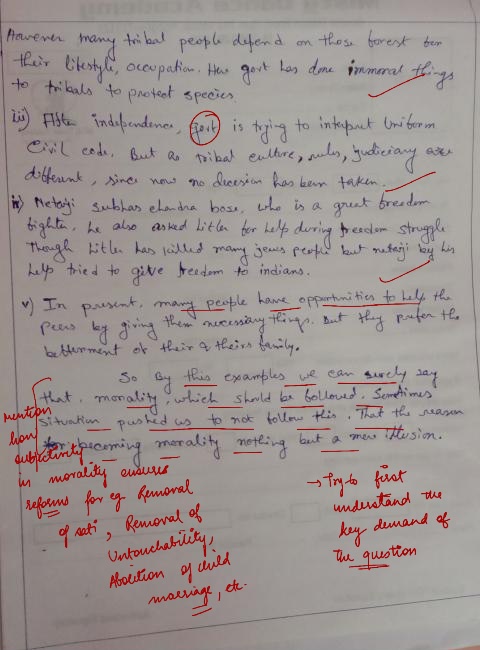 However many tribal people depend on those forest for
their lifestyle, occupation. Here govt has done immoral things
to tribals to protect species.
iii) After independence, govt is trying to interput Uniform
Civil code. But as tribal culture, rules, judiciary are
different, since now no decesion has been taken.
iv) Netaji Subhas chandra bose, who is a great freedom
fighter, he also asked Litler for help during freedom struggle
Though Litler has killed many jews people but netaji by his
help tried to give freedom to indians.
v) In present, many people have opportunities to help the
Peers by giving them necessary things. But they prefer the
betterment of their & theirs family.
So By this examples we can surely say
that, morality, which should be followed. Sometimes
situation pushed us to not follow this. That the reason
for becoming morality nothing but a mere illusion.
mention
how
subjectivity
in morality ensures
reforms for eg Removal
of sati, Removal of
Untouchability,
Abolition of child
marriage, etc.
→ Try to first
understand the
key demand of
the question